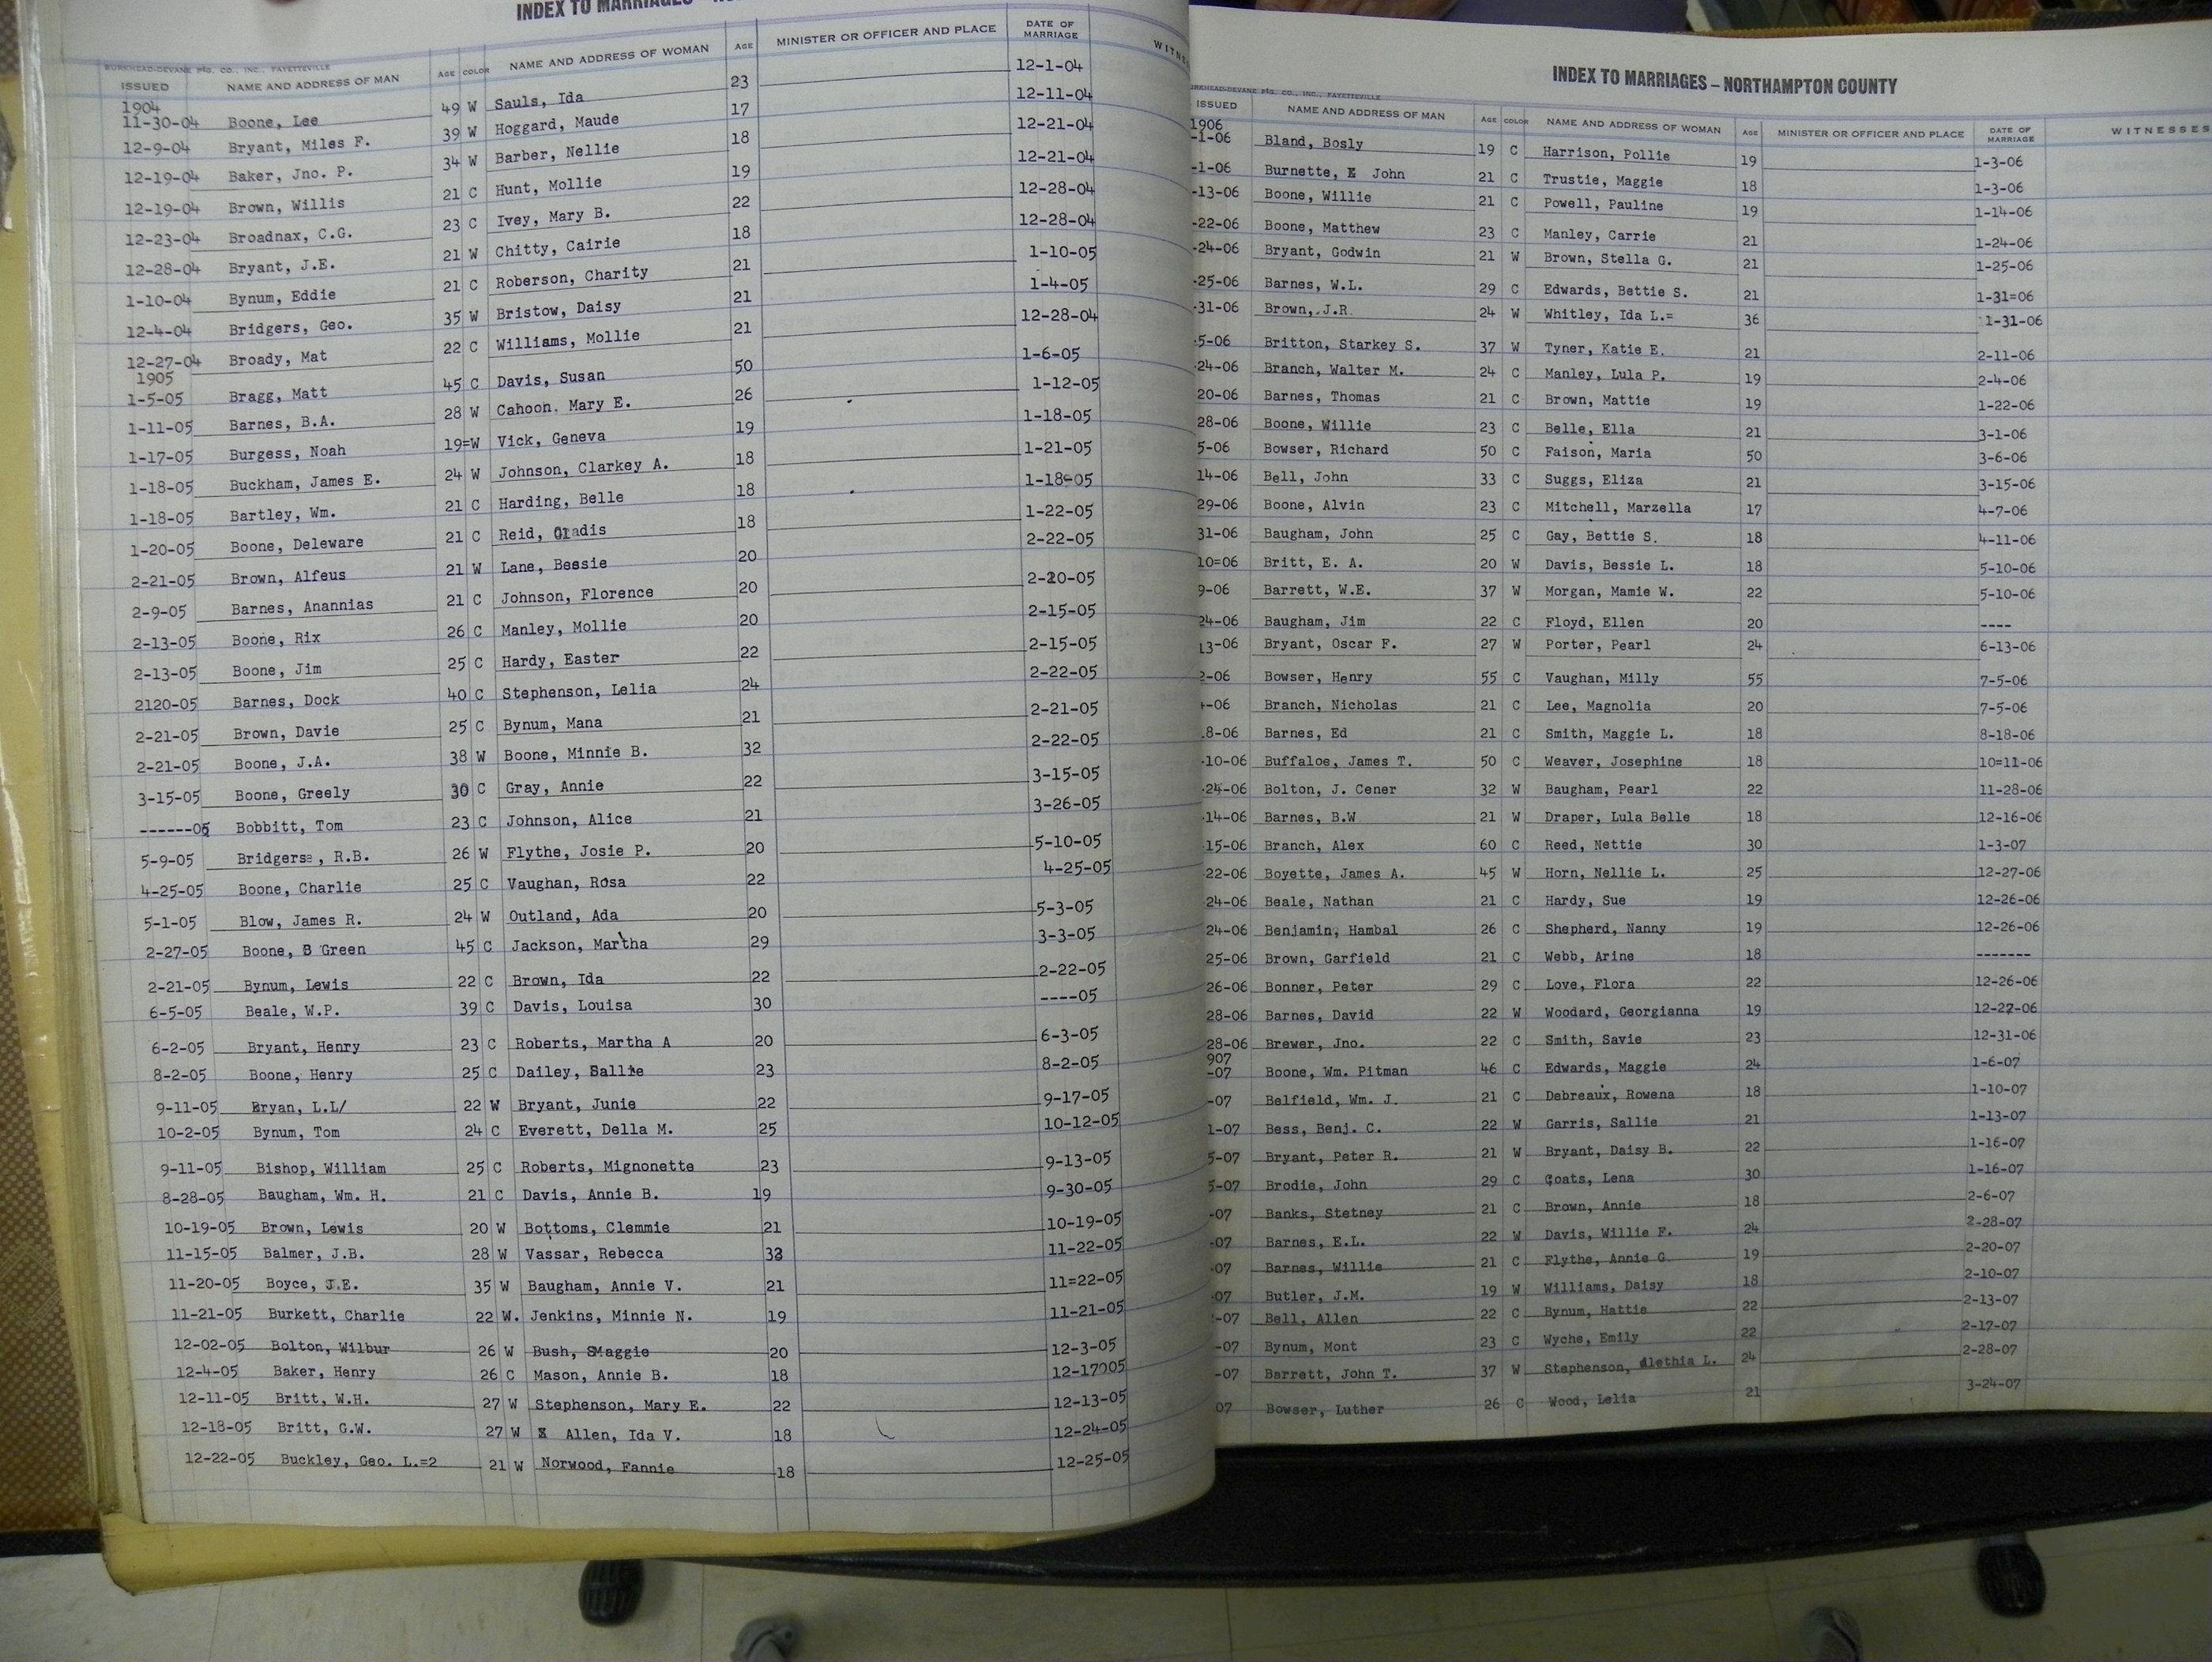 INDEX TO MARRIAGES
BURKHEAD-DEVANE PTG. CO., INC., FAYETTEVILLE
ISSUED NAME AND ADDRESS OF MAN AGE COLOR NAME AND ADDRESS OF WOMAN AGE MINISTER OR OFFICER AND PLACE DATE OF MARRIAGE
1904
11-30-04 Boone, Lee 49 W Sauls, Ida 23 12-1-04
12-9-04 Bryant, Miles F. 39 W Hoggard, Maude 17 12-11-04
12-19-04 Baker, Jno. P. 34 W Barber, Nellie 18 12-21-04
12-19-04 Brown, Willis 21 C Hunt, Mollie 19 12-21-04
12-23-04 Broadnax, C.G. 23 C Ivey, Mary B. 22 12-28-04
12-28-04 Bryant, J.E. 21 W Chitty, Cairie 18 12-28-04
1-10-04 Bynum, Eddie 21 C Roberson, Charity 21 1-10-05
12-4-04 Bridgers, Geo. 35 W Bristow, Daisy 21 1-4-05
12-27-04 Broady, Mat 22 C Williams, Mollie 21 12-28-04
1905
1-5-05 Bragg, Matt 45 C Davis, Susan 50 1-6-05
1-11-05 Barnes, B.A. 28 W Cahoon, Mary E. 26 1-12-05
1-17-05 Burgess, Noah 19=W Vick, Geneva 19 1-18-05
1-18-05 Buckham, James E. 24 W Johnson, Clarkey A. 18 1-21-05
1-18-05 Bartley, Wm. 21 C Harding, Belle 18 1-18-05
1-20-05 Boone, Deleware 21 C Reid, Gradis 18 1-22-05
2-21-05 Brown, Alfeus 21 W Lane, Bessie 20 2-22-05
2-9-05 Barnes, Anannias 21 C Johnson, Florence 20 2-20-05
2-13-05 Boone, Rix 26 C Manley, Mollie 20 2-15-05
2-13-05 Boone, Jim 25 C Hardy, Easter 22 2-15-05
2120-05 Barnes, Dock 40 C Stephenson, Lelia 24 2-22-05
2-21-05 Brown, Davie 25 C Bynum, Mana 21 2-21-05
2-21-05 Boone, J.A. 38 W Boone, Minnie B. 32 2-22-05
3-15-05 Boone, Greely 30 C Gray, Annie 22 3-15-05
------05 Bobbitt, Tom 23 C Johnson, Alice 21 3-26-05
5-9-05 Bridgers, R.B. 26 W Flythe, Josie P. 20 5-10-05
4-25-05 Boone, Charlie 25 C Vaughan, Rosa 22 4-25-05
5-1-05 Blow, James R. 24 W Outland, Ada 20 5-3-05
2-27-05 Boone, S Green 45 C Jackson, Martha 29 3-3-05
2-21-05 Bynum, Lewis 22 C Brown, Ida 22 2-22-05
6-5-05 Beale, W.P. 39 C Davis, Louisa 30 ----05
6-2-05 Bryant, Henry 23 C Roberts, Martha A 20 6-3-05
8-2-05 Boone, Henry 25 C Dailey, Sallie 23 8-2-05
9-11-05 Bryan, L.L/ 22 W Bryant, Junie 22 9-17-05
10-2-05 Bynum, Tom 24 C Everett, Della M. 25 10-12-05
9-11-05 Bishop, William 25 C Roberts, Mignonette 23 9-13-05
8-28-05 Baugham, Wm. H. 21 C Davis, Annie B. 19 9-30-05
10-19-05 Brown, Lewis 20 W Bottoms, Clemmie 21 10-19-05
11-15-05 Balmer, J.B. 28 W Vassar, Rebecca 33 11-22-05
11-20-05 Boyce, J.E. 35 W Baugham, Annie V. 21 11=22-05
11-21-05 Burkett, Charlie 22 W. Jenkins, Minnie N. 19 11-21-05
12-02-05 Bolton, Wilbur 26 W Bush, SMaggie 20 12-3-05
12-4-05 Baker, Henry 26 C Mason, Annie B. 18 12-17005
12-11-05 Britt, W.H. 27 W Stephenson, Mary E. 22 12-13-05
12-18-05 Britt, G.W. 27 W X Allen, Ida V. 18 12-24-05
12-22-05 Buckley, Geo. L.=2 21 W Norwood, Fannie 18 12-25-05
INDEX TO MARRIAGES – NORTHAMPTON COUNTY
URKHEAD-DEVANE PTG. CO., INC., FAYETTEVILLE
ISSUED NAME AND ADDRESS OF MAN AGE COLOR NAME AND ADDRESS OF WOMAN AGE MINISTER OR OFFICER AND PLACE DATE OF MARRIAGE WITNESSES
1906
-1-06 Bland, Bosly 19 C Harrison, Pollie 19 1-3-06
-1-06 Burnette, X John 21 C Trustie, Maggie 18 1-3-06
-13-06 Boone, Willie 21 C Powell, Pauline 19 1-14-06
-22-06 Boone, Matthew 23 C Manley, Carrie 21 1-24-06
-24-06 Bryant, Godwin 21 W Brown, Stella G. 21 1-25-06
-25-06 Barnes, W.L. 29 C Edwards, Bettie S. 21 1-31=06
-31-06 Brown, J.R. 24 W Whitley, Ida L.= 36 1-31-06
-5-06 Britton, Starkey S. 37 W Tyner, Katie E. 21 2-11-06
-24-06 Branch, Walter M. 24 C Manley, Lula P. 19 2-4-06
20-06 Barnes, Thomas 21 C Brown, Mattie 19 1-22-06
28-06 Boone, Willie 23 C Belle, Ella 21 3-1-06
5-06 Bowser, Richard 50 C Faison, Maria 50 3-6-06
14-06 Bell, John 33 C Suggs, Eliza 21 3-15-06
29-06 Boone, Alvin 23 C Mitchell, Marzella 17 4-7-06
31-06 Baugham, John 25 C Gay, Bettie S. 18 4-11-06
10=06 Britt, E. A. 20 W Davis, Bessie L. 18 5-10-06
9-06 Barrett, W.E. 37 W Morgan, Mamie W. 22 5-10-06
24-06 Baugham, Jim 22 C Floyd, Ellen 20 ----
13-06 Bryant, Oscar F. 27 W Porter, Pearl 24 6-13-06
2-06 Bowser, Henry 55 C Vaughan, Milly 55 7-5-06
-06 Branch, Nicholas 21 C Lee, Magnolia 20 7-5-06
8-06 Barnes, Ed 21 C Smith, Maggie L. 18 8-18-06
-10-06 Buffaloe, James T. 50 C Weaver, Josephine 18 10=11-06
-24-06 Bolton, J. Cener 32 W Baugham, Pearl 22 11-28-06
-14-06 Barnes, B.W 21 W Draper, Lula Belle 18 12-16-06
15-06 Branch, Alex 60 C Reed, Nettie 30 1-3-07
-22-06 Boyette, James A. 45 W Horn, Nellie L. 25 12-27-06
24-06 Beale, Nathan 21 C Hardy, Sue 19 12-26-06
24-06 Benjamin, Hambal 26 C Shepherd, Nanny 19 12-26-06
25-06 Brown, Garfield 21 C Webb, Arine 18 -------
26-06 Bonner, Peter 29 C Love, Flora 22 12-26-06
28-06 Barnes, David 22 W Woodard, Georgianna 19 12-27-06
28-06 Brewer, Jno. 22 C Smith, Savie 23 12-31-06
907
-07 Boone, Wm. Pitman 46 C Edwards, Maggie 24 1-6-07
-07 Belfield, Wm. J. 21 C Debreaux, Rowena 18 1-10-07
1-07 Bess, Benj. C. 22 W Garris, Sallie 21 1-13-07
5-07 Bryant, Peter R. 21 W Bryant, Daisy B. 22 1-16-07
5-07 Brodie, John 29 C Coats, Lena 30 1-16-07
-07 Banks, Stetney 21 C Brown, Annie 18 2-6-07
-07 Barnes, E.L. 22 W Davis, Willie F. 24 2-28-07
-07 Barnes, Willie 21 C Flythe, Annie G. 19 2-20-07
-07 Butler, J.M. 19 W Williams, Daisy 18 2-10-07
-07 Bell, Allen 22 C Bynum, Hattie 22 2-13-07
-07 Bynum, Mont 23 C Wyche, Emily 22 2-17-07
-07 Barrett, John T. 37 W Stephenson, Alethia L. 24 2-28-07
07 Bowser, Luther 26 C Wood, Lelia 21 3-24-07